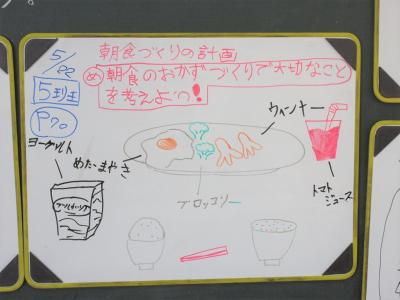 5/22
朝食づくりの計画
5班
め 朝食のおかずづくりで大切なこと
を考えよう!
P70
ウィンナー
ヨーグルト
めだまやき
ブロッコリー
トマト
ジュース